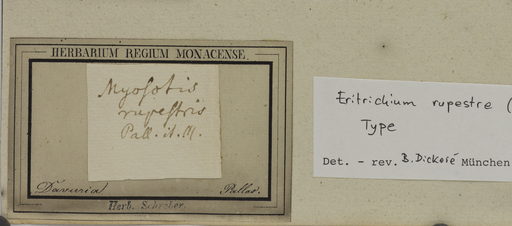 HERBARIUM REGIUM MONACENSE.
Myosotis
rupestris
Pall. it. III.
Davuria Pallas.
Herb. Schreber.
Eritrichium rupestre (
Type
Det. - rev. B. Dickoré München